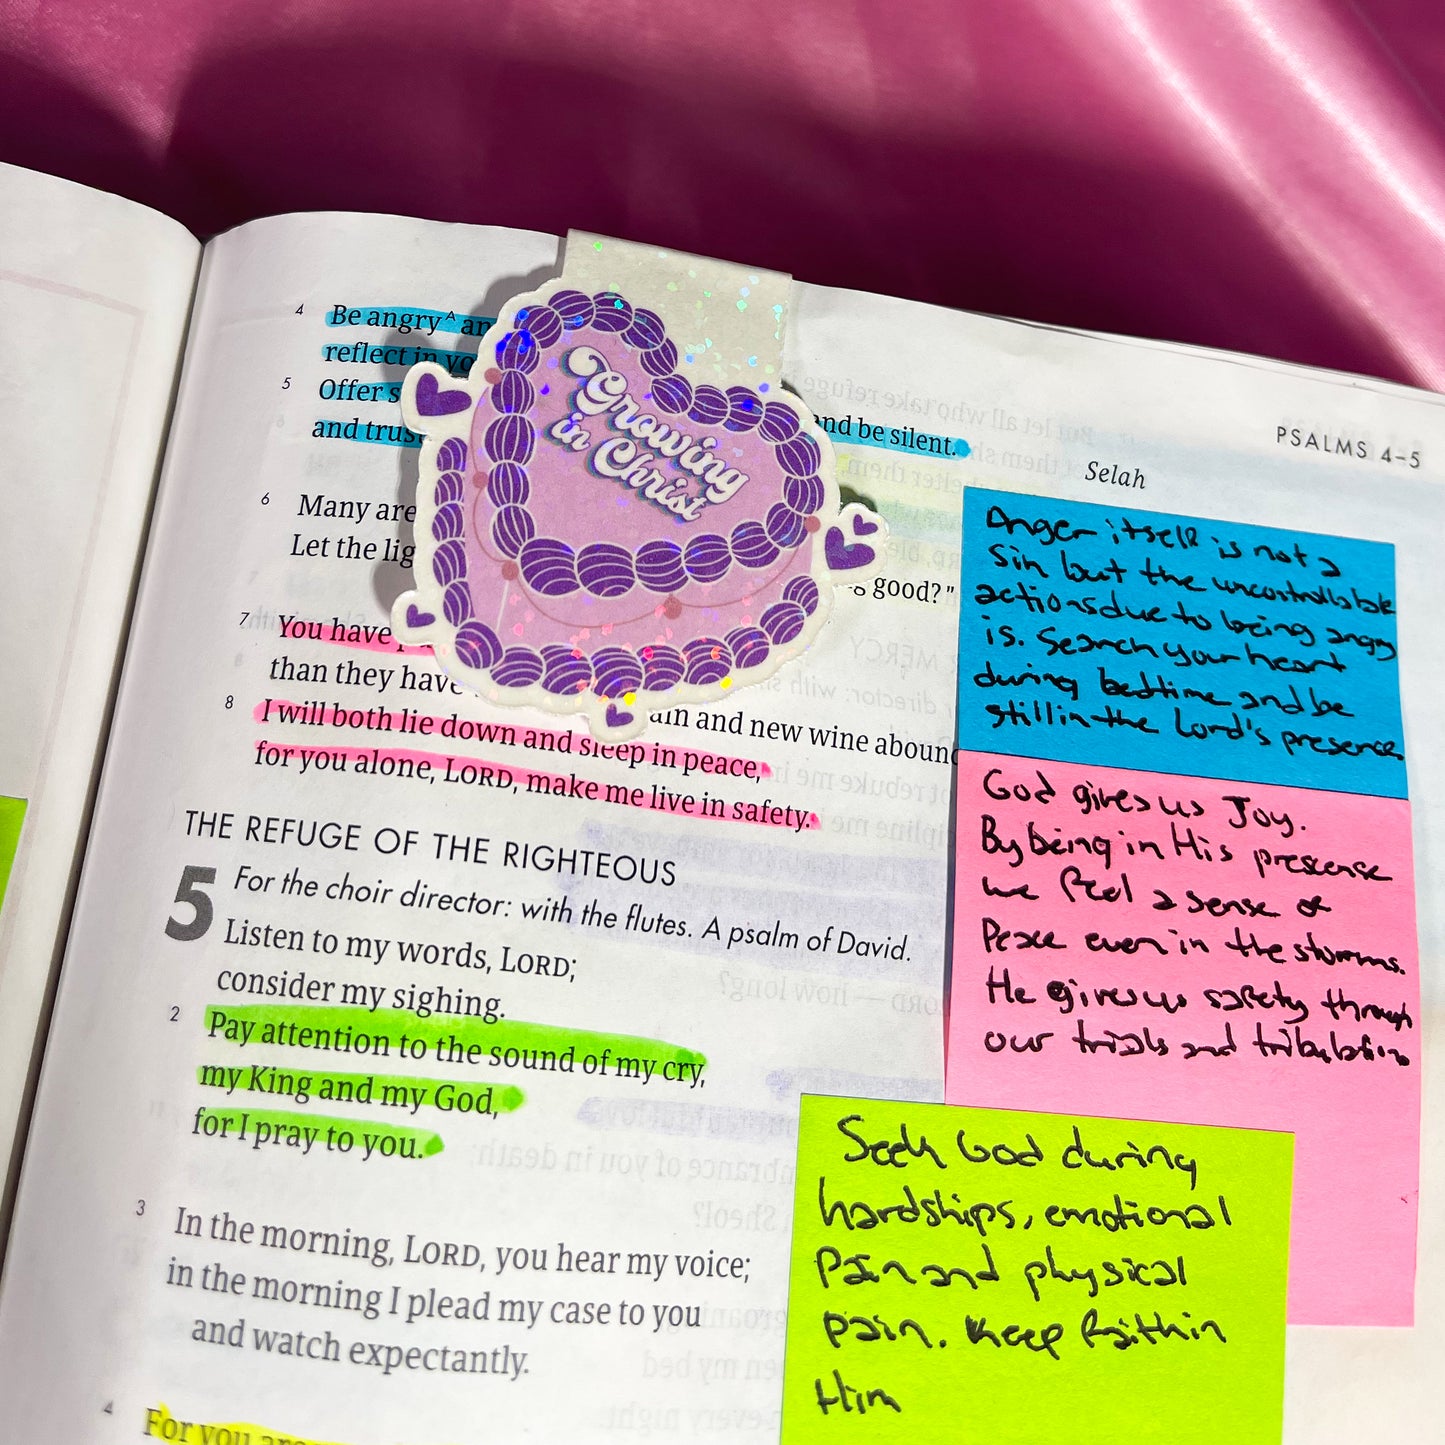 PSALMS 4–5
4 Be angry A an
reflect in yo and be silent.
Selah
5 Offer s
and trus
6 Many are
Let the lig good?"
7 You have
than they have ain and new wine abound
8 I will both lie down and sleep in peace,
for you alone, LORD, make me live in safety.
THE REFUGE OF THE RIGHTEOUS
5 For the choir director: with the flutes. A psalm of David.
Listen to my words, LORD;
consider my sighing.
2 Pay attention to the sound of my cry,
my King and my God,
for I pray to you.
3 In the morning, LORD, you hear my voice;
in the morning I plead my case to you
and watch expectantly.
4 For you are
Growing
in Christ
Anger itself is not a
sin but the uncontrollable
actions due to being angry
is. Search your heart
during bedtime and be
still in the Lord's presence
God gives us Joy.
By being in His presense
we feel a sense of
Peace even in the storms.
He gives us safety through
our trials and tribulations
Seek God during
hardships, emotional
Pain and physical
pain. Keep faith in
Him